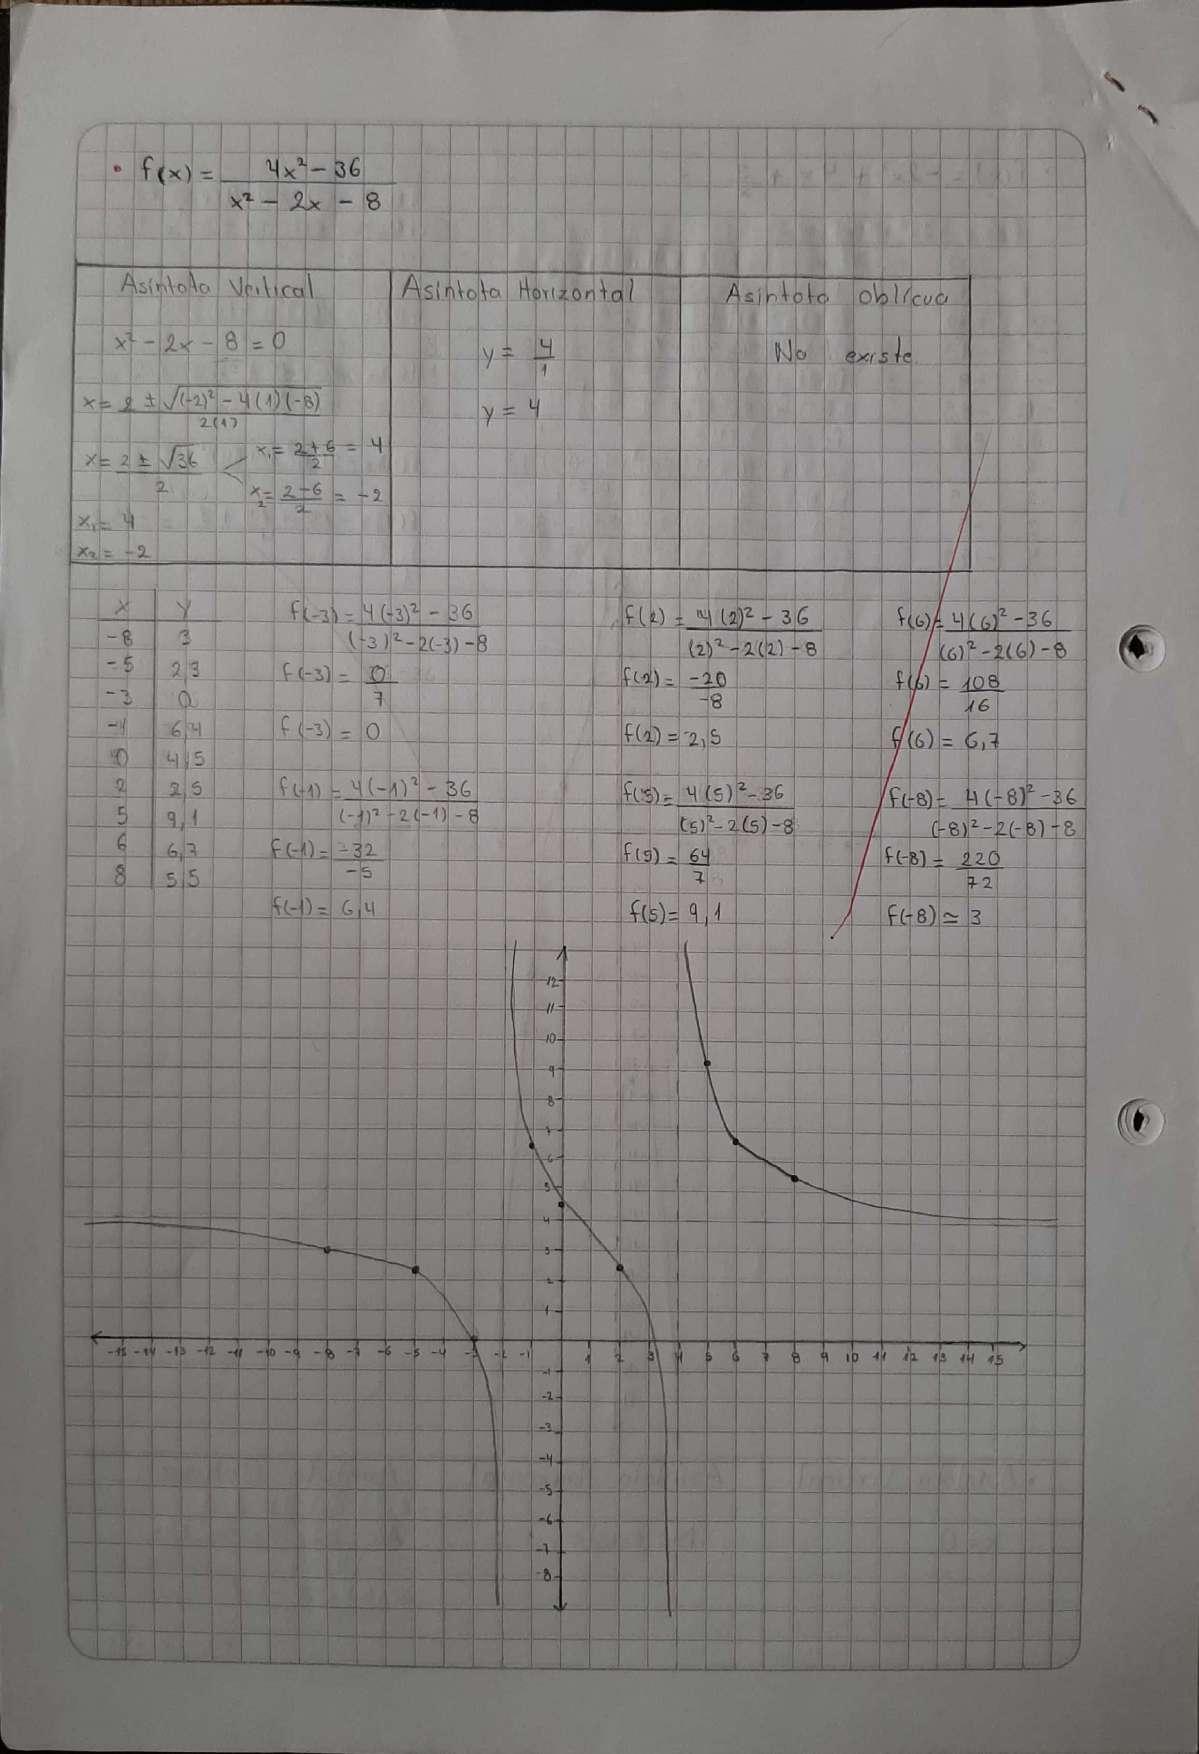 • f(x) = 4x² - 36
x² - 2x - 8
Asíntota Vertical
x² - 2x - 8 = 0
x = 2 ± √(-2)² - 4(1)(-8)
2(1)
x = 2 ± √36
2
x₁ = 2+6 = 4
2
x₂ = 2-6 = -2
2
x₁ = 4
x₂ = -2
Asíntota Horizontal
y = 4
1
y = 4
Asíntota Oblicua
No existe
x y
-8 3
-5 2,3
-3 0
-1 6,4
0 4,5
2 2,5
5 9,1
6 6,7
8 5,5
f(-3) = 4(-3)² - 36
(-3)² - 2(-3) - 8
f(-3) = 0
7
f(-3) = 0
f(-1) = 4(-1)² - 36
(-1)² - 2(-1) - 8
f(-1) = -32
-5
f(-1) = 6,4
f(2) = 4(2)² - 36
(2)² - 2(2) - 8
f(2) = -20
-8
f(2) = 2,5
f(5) = 4(5)² - 36
(5)² - 2(5) - 8
f(5) = 64
7
f(5) = 9,1
f(6) = 4(6)² - 36
(6)² - 2(6) - 8
f(6) = 108
16
f(6) = 6,7
f(-8) = 4(-8)² - 36
(-8)² - 2(-8) - 8
f(-8) = 220
72
f(-8) ≃ 3
12
11
10
9
8
7
6
5
4
3
2
1
-15 -14 -13 -12 -11 -10 -9 -8 -7 -6 -5 -4 -3 -2 -1 1 2 3 4 5 6 7 8 9 10 11 12 13 14 15
-1
-2
-3
-4
-5
-6
-7
-8